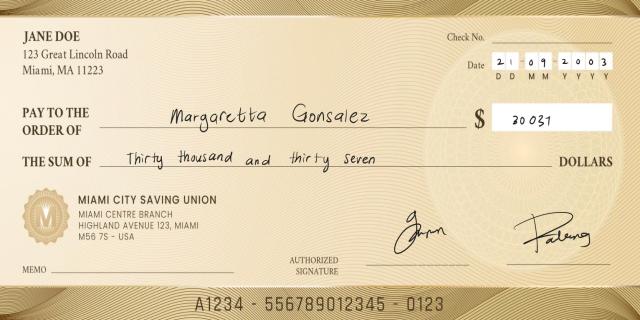 JANE DOE
123 Great Lincoln Road
Miami, MA 11223
Check No.
Date 21-09-2003
D D M M Y Y Y Y
PAY TO THE
ORDER OF Margaretta Gonsalez $ 30037
THE SUM OF Thirty thousand and thirty seven DOLLARS
M
MIAMI CITY SAVING UNION
MIAMI CENTRE BRANCH
HIGHLAND AVENUE 123, MIAMI
M56 7S - USA
MEMO
AUTHORIZED
SIGNATURE
A1234 - 556789012345 - 0123